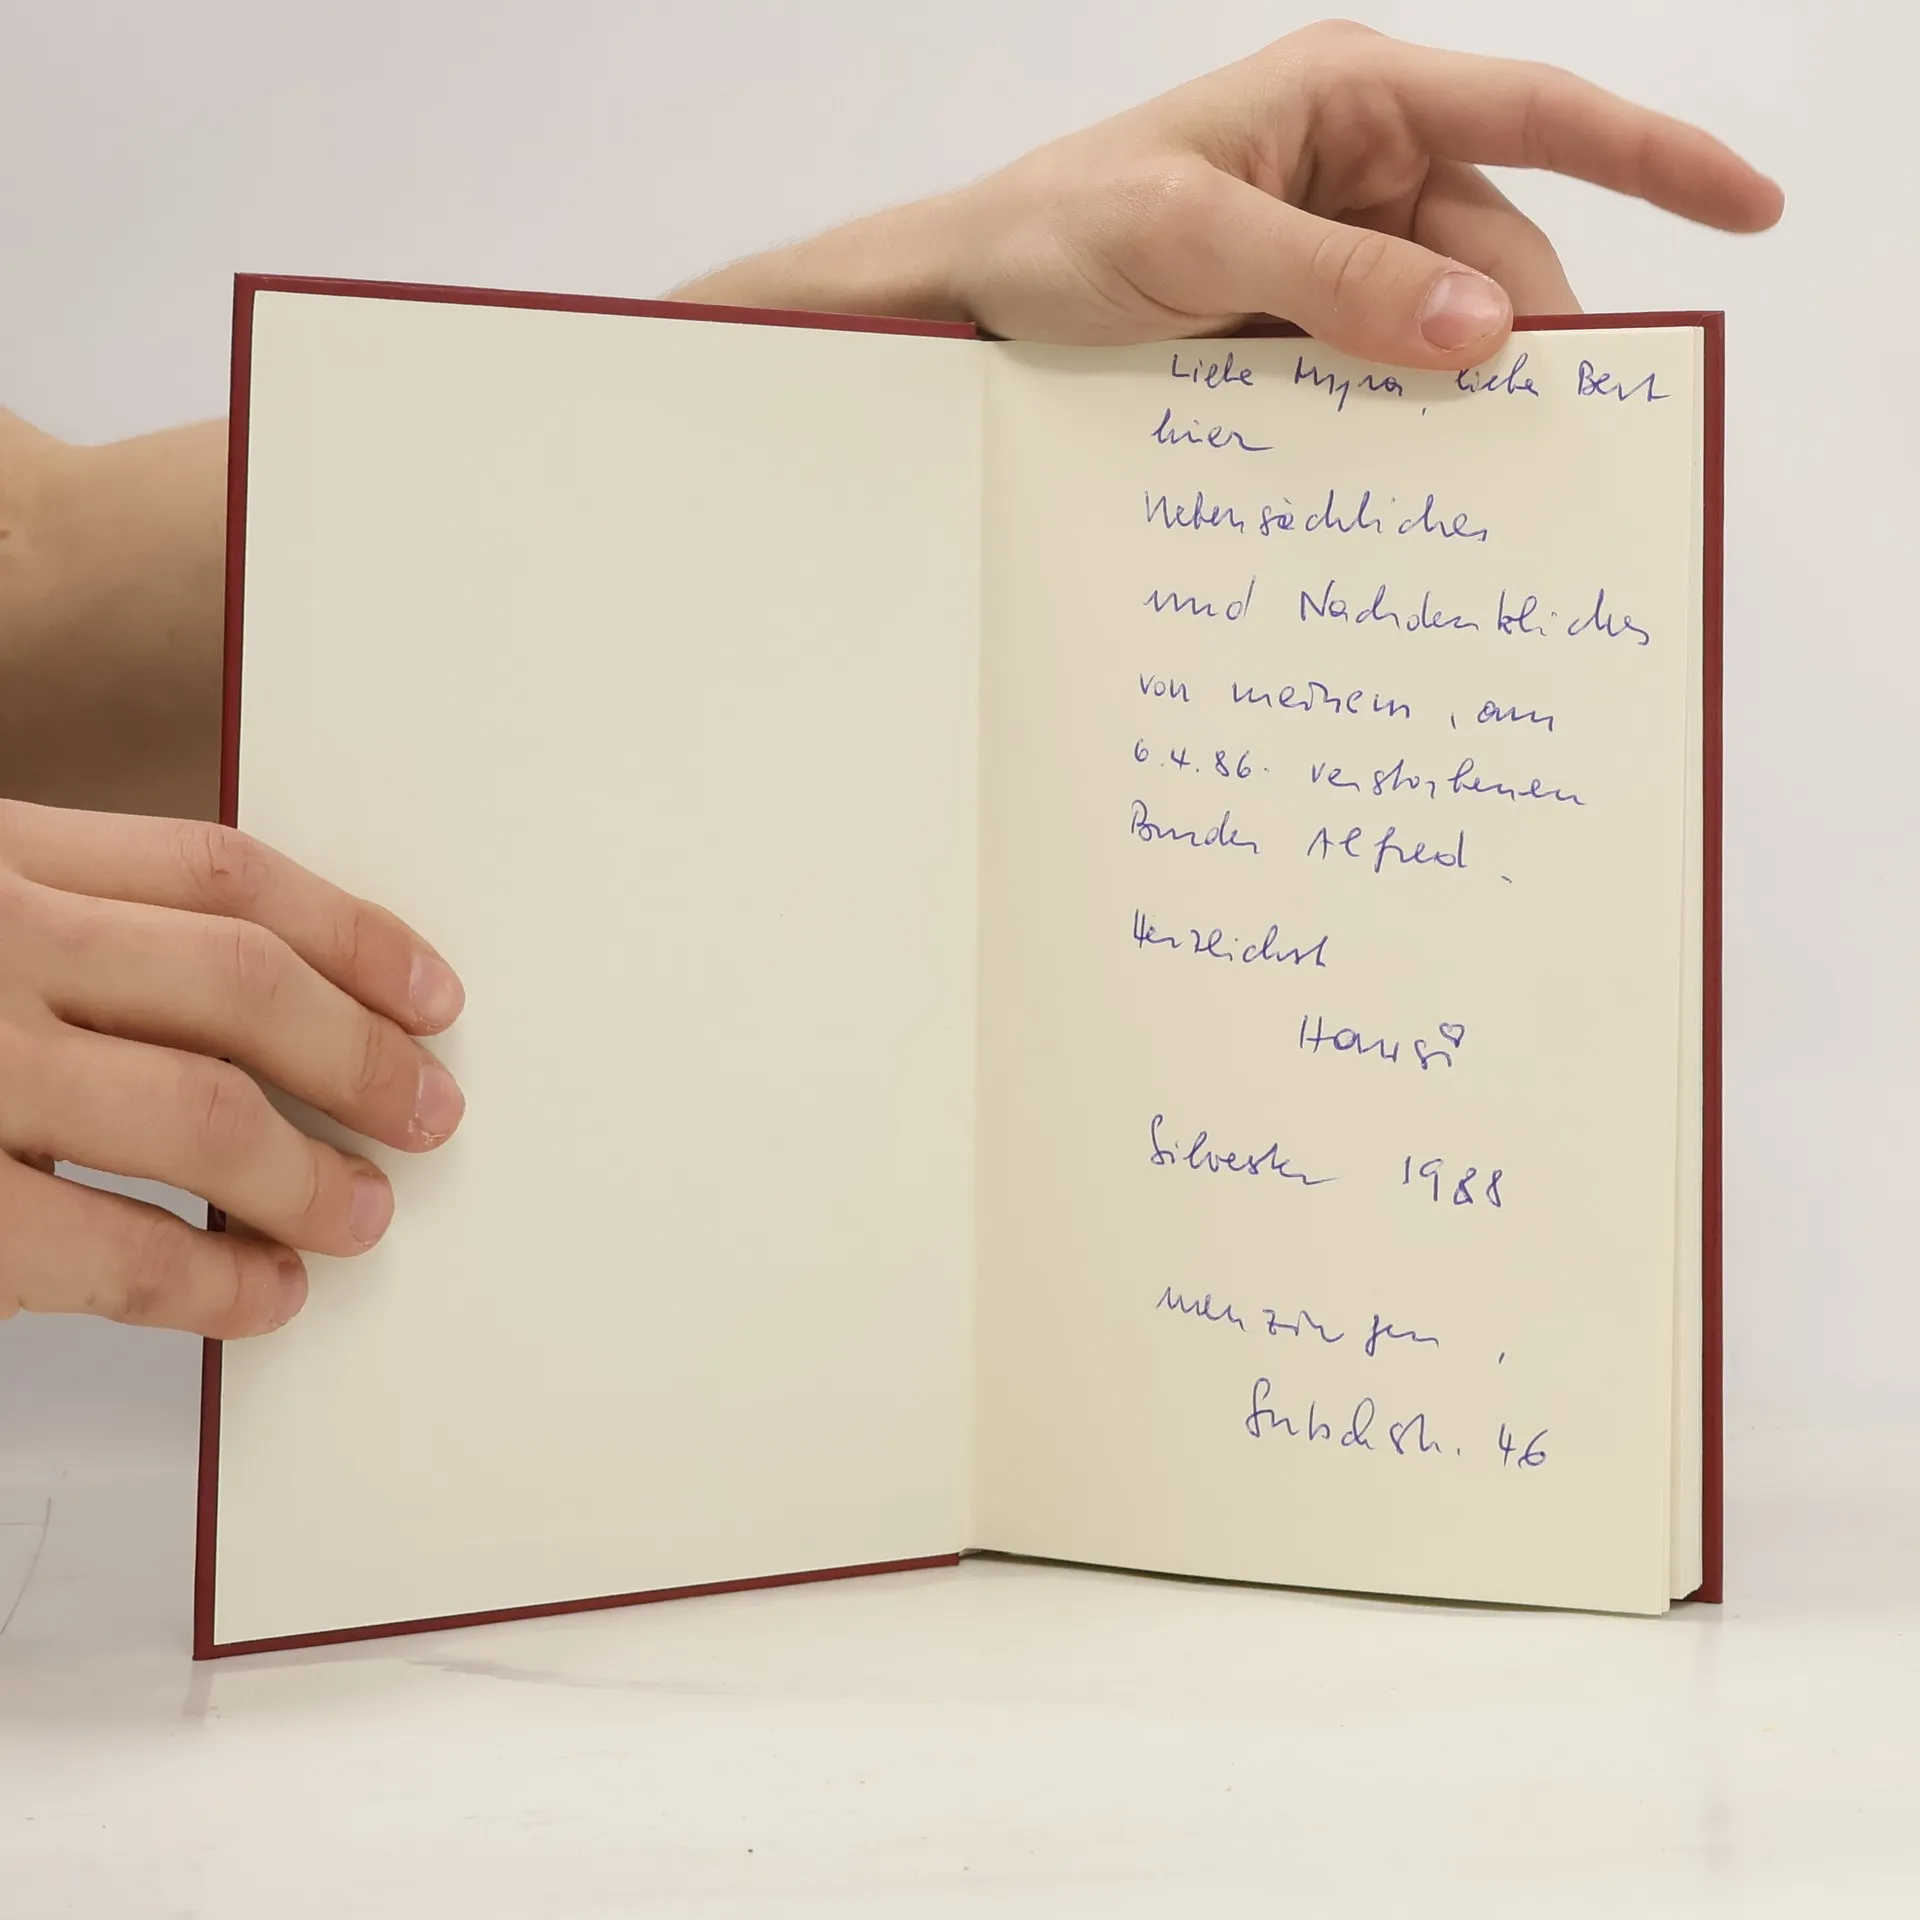 Liebe Myra, liebe Bert
hier
Nebensächliches
und Nachdenkliches
von meinem, am
6.4.86. verstorbenen
Bruder Alfred.
Herzlichst
Hansi
Silvester 1988
Menzingen,
46